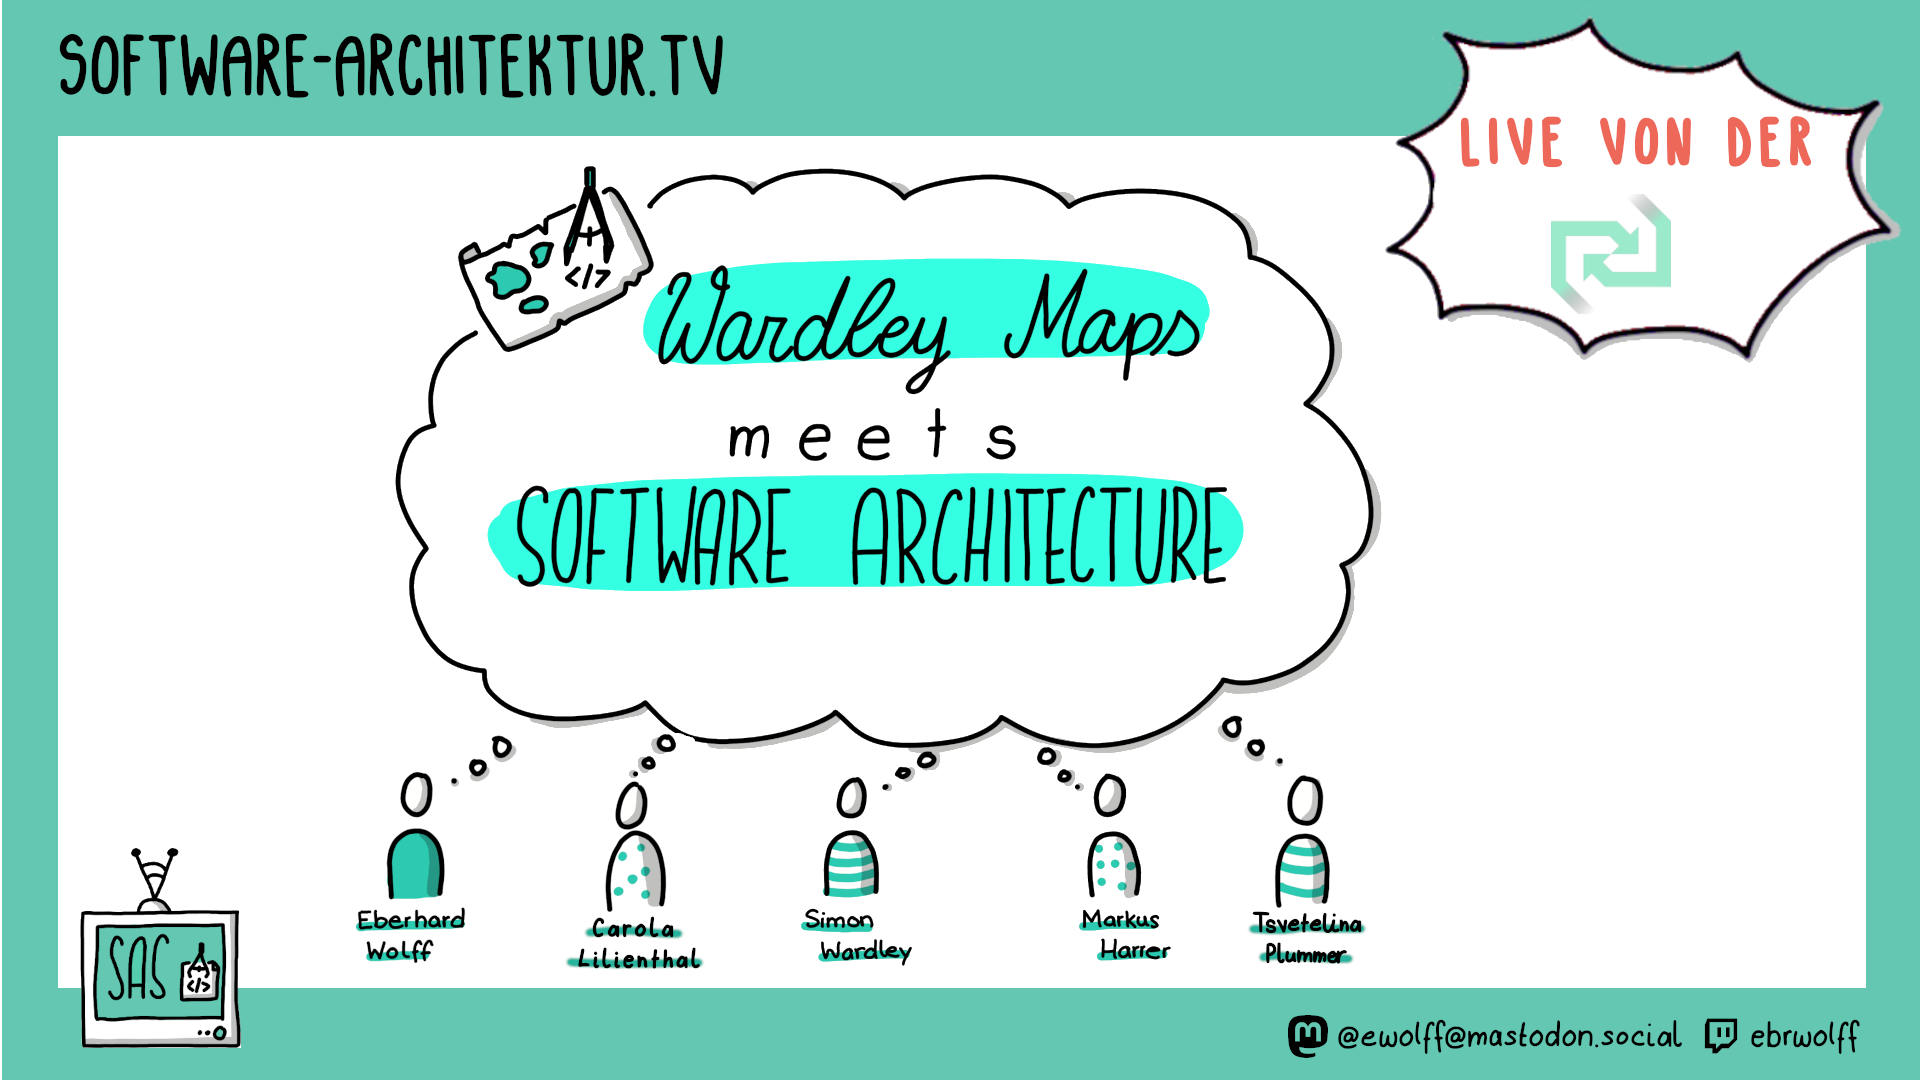 SOFTWARE-ARCHITEKTUR.TV
LIVE VON DER
</>
Wardley Maps
meets
SOFTWARE ARCHITECTURE
Eberhard
Wolff
Carola
Lilienthal
Simon
Wardley
Markus
Harrer
Tsvetelina
Plummer
SAS
</>
@ewolff@mastodon.social
ebrwolff